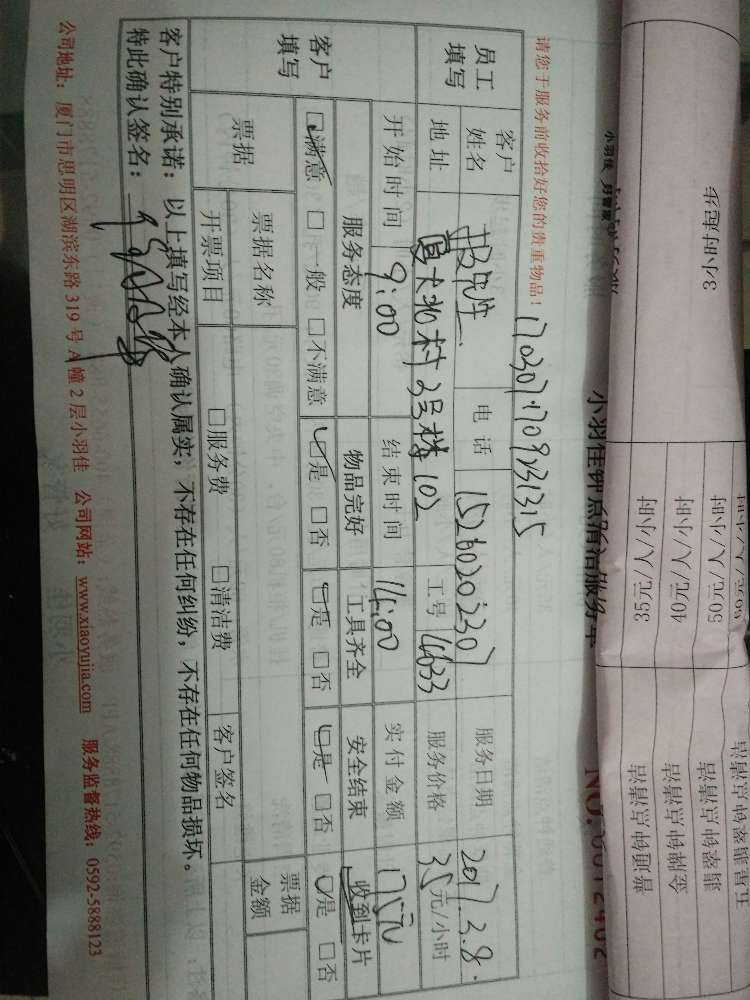 小羽佳 好管家
小羽佳钟点清洁服务单
NO.
请您于服务前收拾好您的贵重物品！
1703071709231315
员工填写
客户姓名
先生
电话
服务日期 2017.3.8.
地址
厦大北村3号楼102
工号 4633
服务价格 35元/小时
开始时间 9:00
结束时间 14:00
实付金额 175元
客户填写
服务态度 物品完好 工具齐全 安全结束 收到卡片
☑满意 □一般 □不满意 ☑是 □否 ☑是 □否 ☑是 □否 ☑是 □否
票据 票据名称 票据金额
开票项目 □服务费 □清洁费 客户签名
客户特别承诺：以上填写经本人确认属实，不存在任何纠纷，不存在任何物品损坏。
特此确认签名：
公司地址：厦门市思明区湖滨东路319号A幢2层小羽佳 公司网站：www.xiaoyujia.com 服务监督热线：0592-5888123
3小时起步
35元/人/小时
40元/人/小时
50元/人/小时
普通钟点清洁
金牌钟点清洁